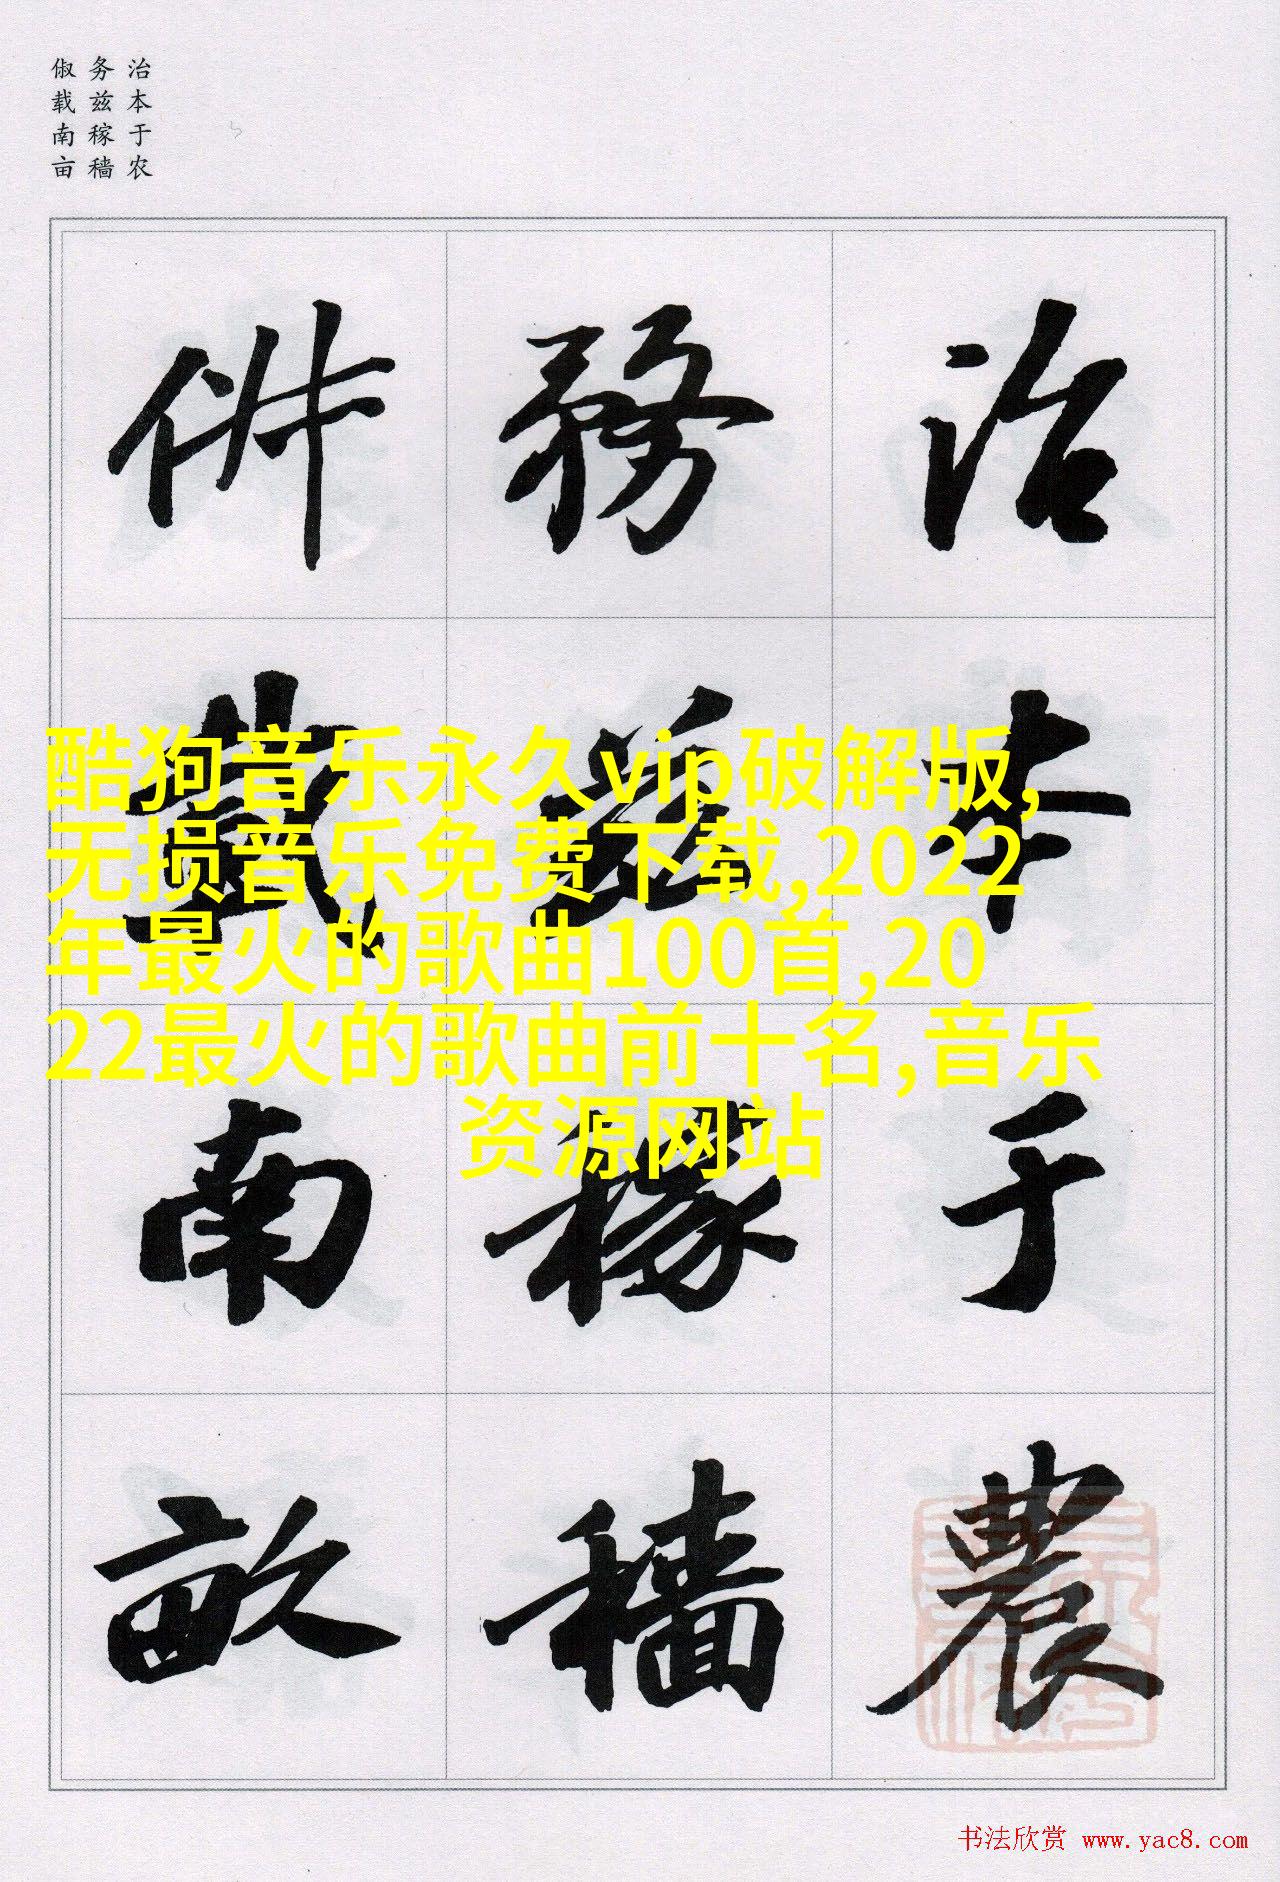 治本于农
务兹稼穑
俶载南亩
治本于農
務兹稼穡
俶載南畝
酷狗音乐永久vip破解版,
无损音乐免费下载,2022
年最火的歌曲100首,20
22最火的歌曲前十名,音乐
资源网站
书法欣赏 www.yac8.com